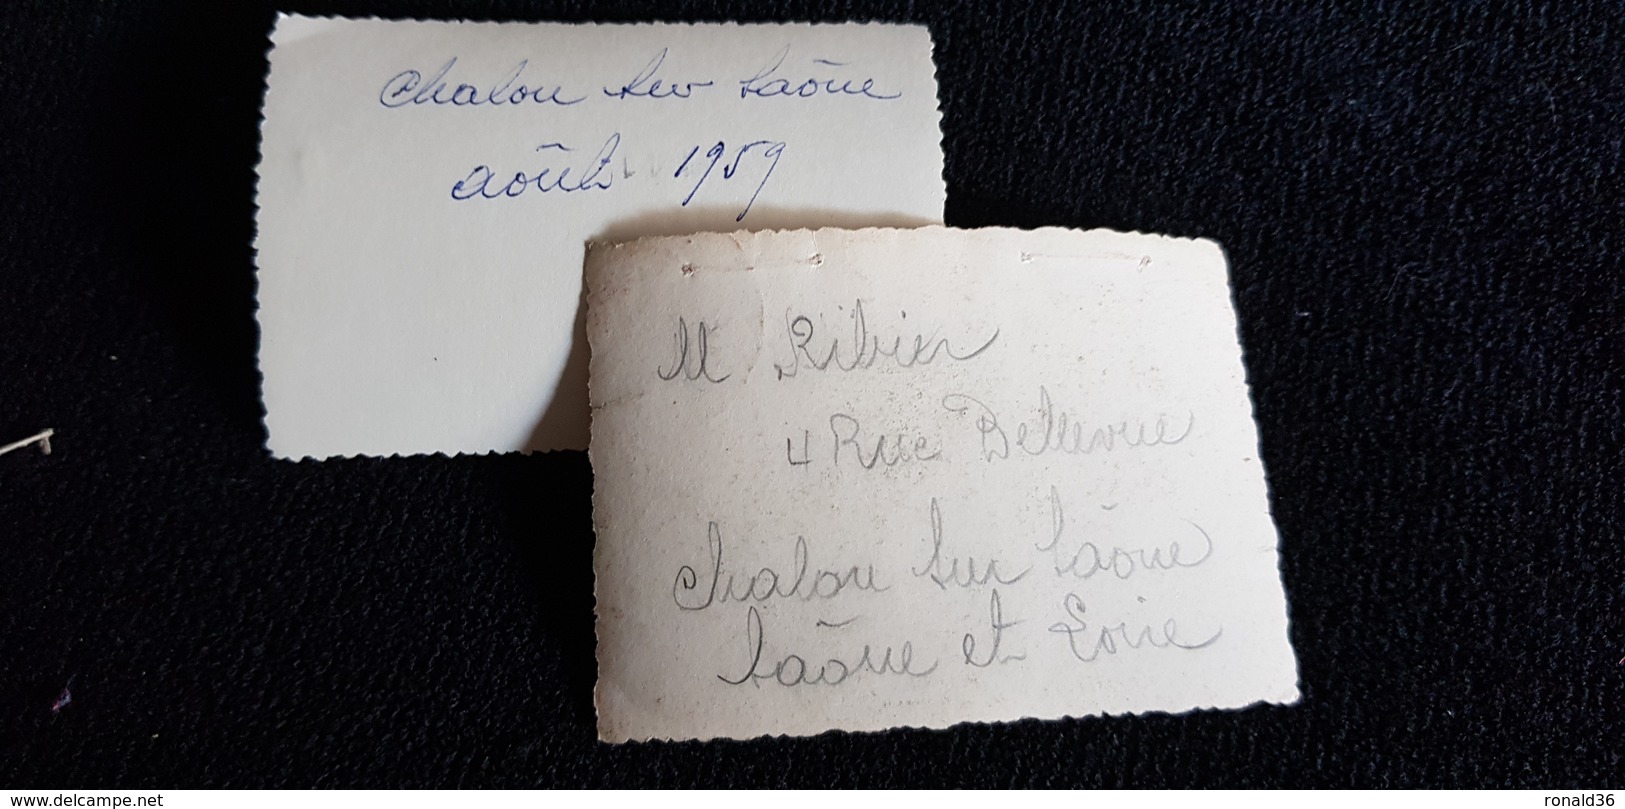 Chalon sur Saône
août 1959
M Ribier
4 Rue Bellevue
Chalon sur Saône
Saône et Loire
www.delcampe.net
ronald36